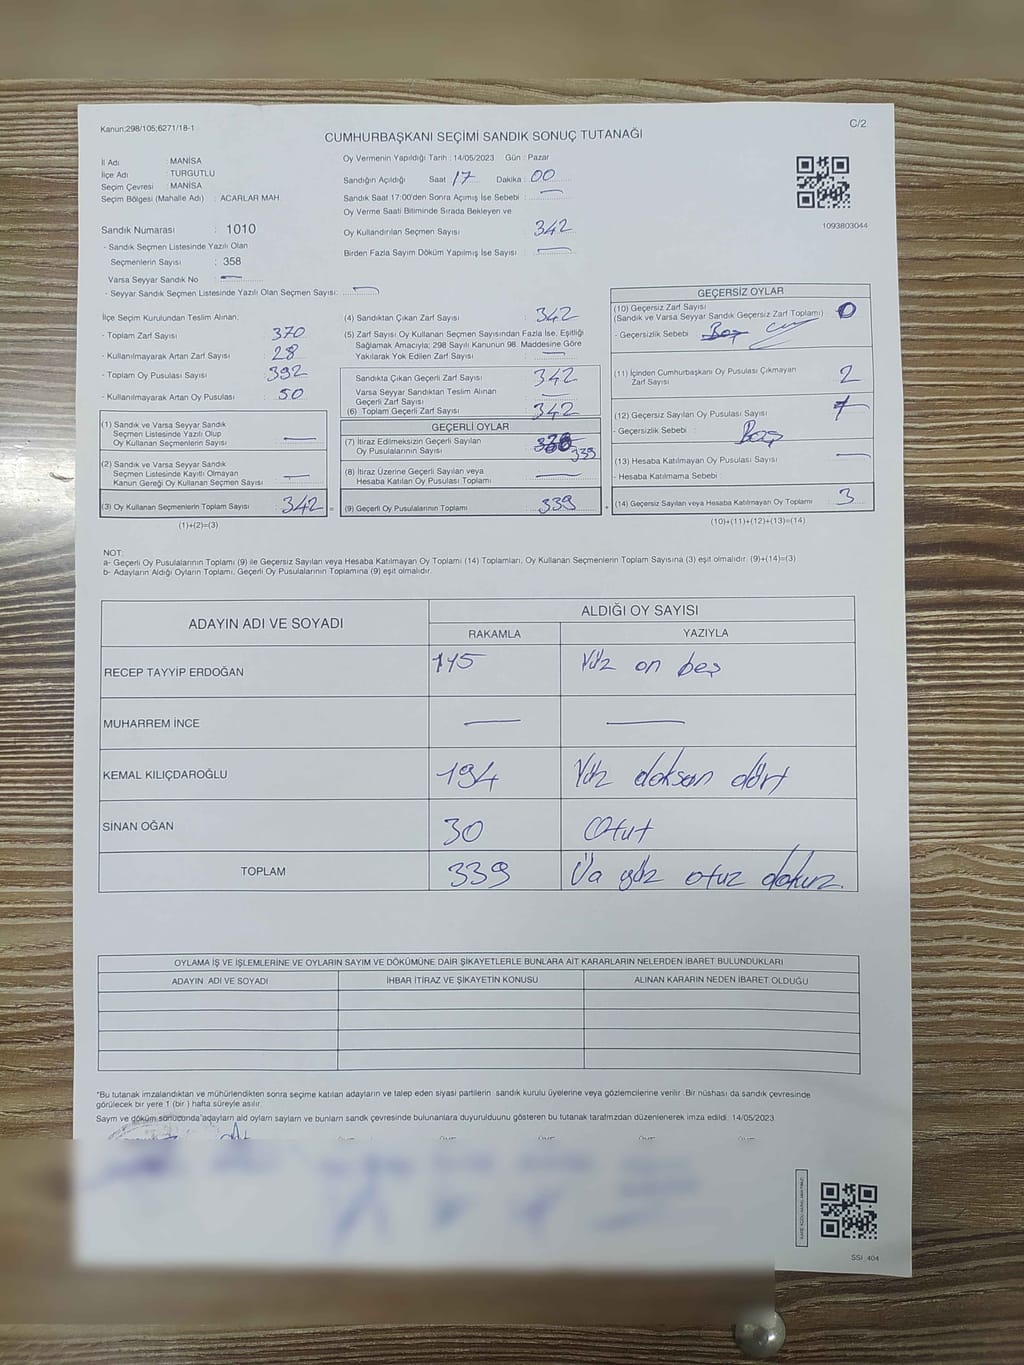 Kanun;298/105;6271/18-1
C/2
CUMHURBAŞKANI SEÇİMİ SANDIK SONUÇ TUTANAĞI
İl Adı : MANİSA
İlçe Adı : TURGUTLU
Seçim Çevresi : MANİSA
Seçim Bölgesi (Mahalle Adı) : ACARLAR MAH
Sandık Numarası : 1010
- Sandık Seçmen Listesinde Yazılı Olan
Seçmenlerin Sayısı : 358
Varsa Seyyar Sandık No : —
- Seyyar Sandık Seçmen Listesinde Yazılı Olan Seçmen Sayısı: —
Oy Vermenin Yapıldığı Tarih : 14/05/2023 Gün : Pazar
Sandığın Açıldığı Saat 17 Dakika : 00
Sandık Saat 17:00'den Sonra Açımış İse Sebebi : —
Oy Verme Saati Bitiminde Sırada Bekleyen ve
Oy Kullandırılan Seçmen Sayısı 342
Birden Fazla Sayım Döküm Yapılmış İse Sayısı : —
1093803044
İlçe Seçim Kurulundan Teslim Alınan;
- Toplam Zarf Sayısı 370
- Kullanılmayarak Artan Zarf Sayısı 28
- Toplam Oy Pusulası Sayısı 392
- Kullanılmayarak Artan Oy Pusulası 50
(1) Sandık ve Varsa Seyyar Sandık
Seçmen Listesinde Yazılı Olup
Oy Kullanan Seçmenlerin Sayısı —
(2) Sandık ve Varsa Seyyar Sandık
Seçmen Listesinde Kayıtlı Olmayan
Kanun Gereği Oy Kullanan Seçmen Sayısı —
(3) Oy Kullanan Seçmenlerin Toplam Sayısı 342
(1)+(2)=(3)
(4) Sandıktan Çıkan Zarf Sayısı : 342
(5) Zarf Sayısı Oy Kullanan Seçmen Sayısından Fazla İse, Eşitliği
Sağlamak Amacıyla; 298 Sayılı Kanunun 98. Maddesine Göre
Yakılarak Yok Edilen Zarf Sayısı : —
Sandıkta Çıkan Geçerli Zarf Sayısı 342
Varsa Seyyar Sandıktan Teslim Alınan
Geçerli Zarf Sayısı —
(6) Toplam Geçerli Zarf Sayısı 342
GEÇERLİ OYLAR
(7) İtiraz Edilmeksizin Geçerli Sayılan
Oy Pusulalarının Sayısı 339
(8) İtiraz Üzerine Geçerli Sayılan veya
Hesaba Katılan Oy Pusulası Toplamı —
(9) Geçerli Oy Pusulalarının Toplamı 339
GEÇERSİZ OYLAR
(10) Geçersiz Zarf Sayısı
(Sandık ve Varsa Seyyar Sandık Geçersiz Zarf Toplamı) 0
- Geçersizlik Sebebi : Boş
(11) İçinden Cumhurbaşkanı Oy Pusulası Çıkmayan
Zarf Sayısı 2
(12) Geçersiz Sayılan Oy Pusulası Sayısı 1
- Geçersizlik Sebebi : Boş
(13) Hesaba Katılmayan Oy Pusulası Sayısı —
- Hesaba Katılmama Sebebi :
(14) Geçersiz Sayılan veya Hesaba Katılmayan Oy Toplamı 3
(10)+(11)+(12)+(13)=(14)
NOT:
a- Geçerli Oy Pusulalarının Toplamı (9) ile Geçersiz Sayılan veya Hesaba Katılmayan Oy Toplamı (14) Toplamları, Oy Kullanan Seçmenlerin Toplam Sayısına (3) eşit olmalıdır. (9)+(14)=(3)
b- Adayların Aldığı Oyların Toplamı, Geçerli Oy Pusulalarının Toplamına (9) eşit olmalıdır.
ADAYIN ADI VE SOYADI
ALDIĞI OY SAYISI
RAKAMLA YAZIYLA
RECEP TAYYİP ERDOĞAN 115 Yüz on beş
MUHARREM İNCE — —
KEMAL KILIÇDAROĞLU 194 Yüz doksan dört
SİNAN OĞAN 30 Otuz
TOPLAM 339 Üç yüz otuz dokuz.
OYLAMA İŞ VE İŞLEMLERİNE VE OYLARIN SAYIM VE DÖKÜMÜNE DAİR ŞİKAYETLERLE BUNLARA AİT KARARLARIN NELERDEN İBARET BULUNDUKLARI
ADAYIN ADI VE SOYADI İHBAR İTİRAZ VE ŞİKAYETİN KONUSU ALINAN KARARIN NEDEN İBARET OLDUĞU
*Bu tutanak imzalandıktan ve mühürlendikten sonra seçime katılan adayların ve talep eden siyasi partilerin sandık kurulu üyelerine veya gözlemcilerine verilir. Bir nüshası da sandık çevresinde
görülecek bir yere 1 (bir ) hafta süreyle asılır.
Sayım ve döküm sonucunda adayların ald oyların sayıları ve bunların sandık çevresinde bulunanlara duyurulduunu gösteren bu tutanak tarafımızdan düzenlenerek imza edildi. 14/05/2023
SSI_404